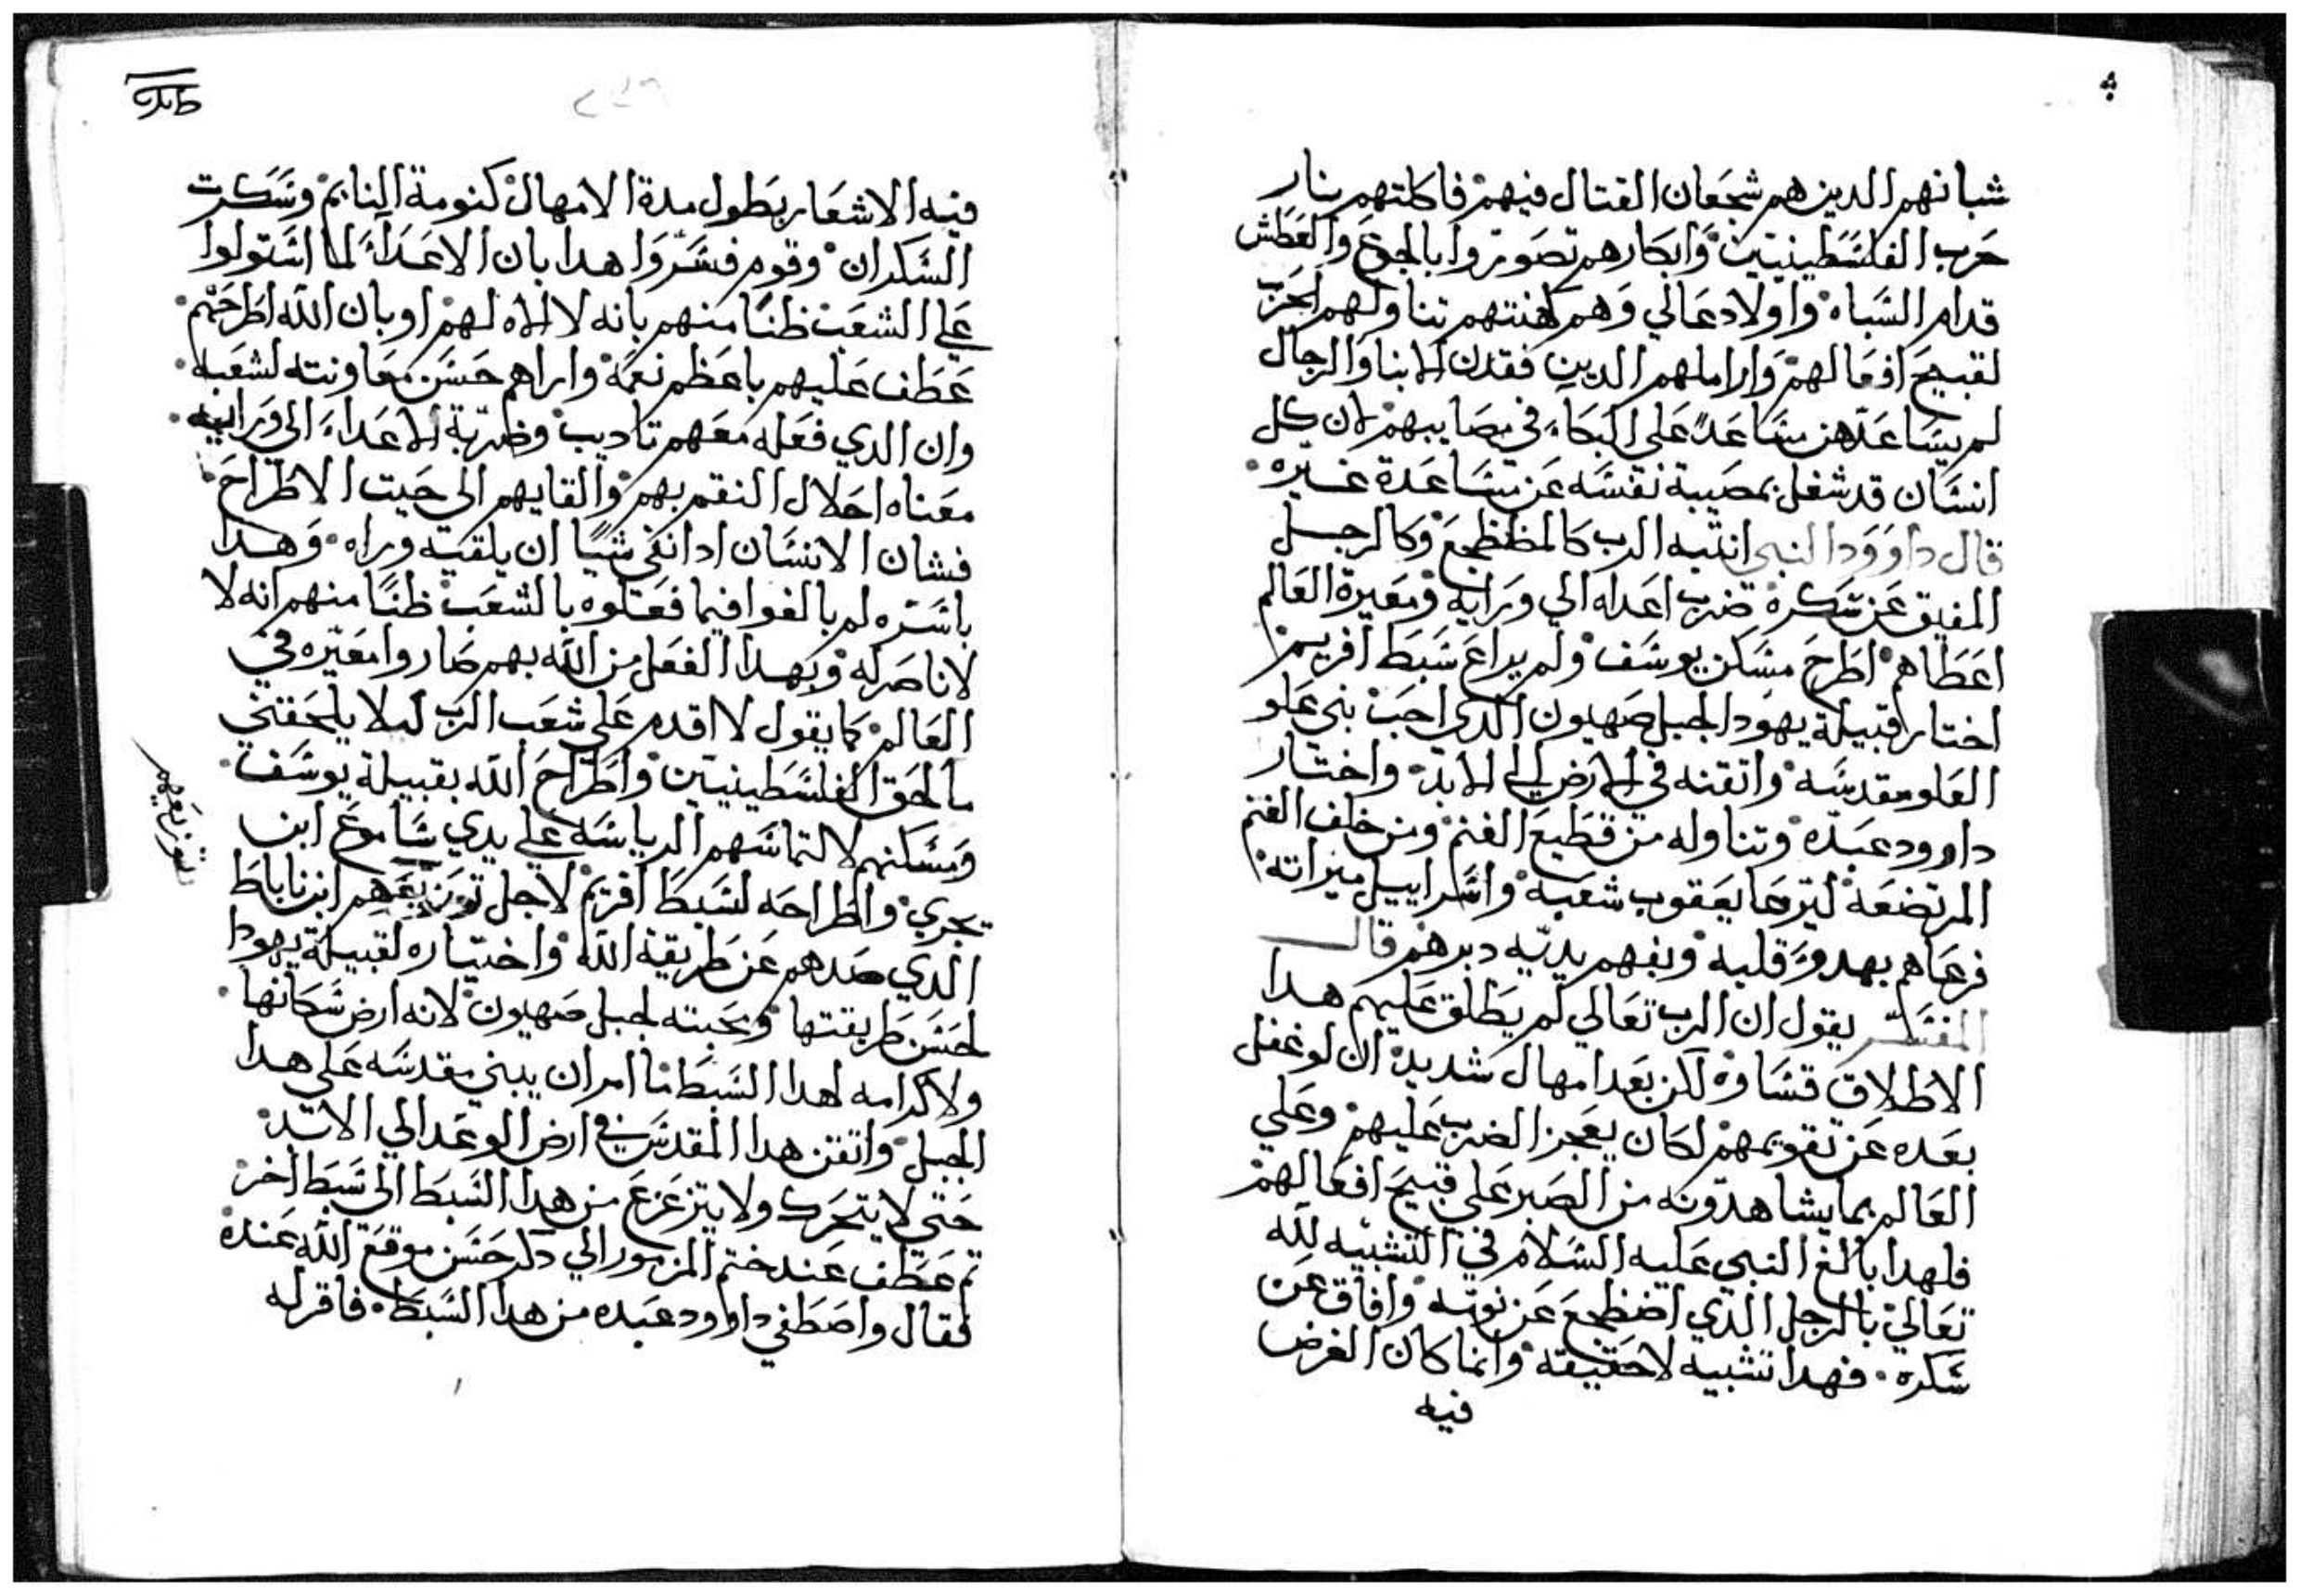 شبانهم الدين هم شجعان القتال فيهم فاكلتهم بنار
حرب الفلسطينيين وابكارهم تصوروا بالجوع والعطش
قدام السباه واولاد عالي وهم كهنتهم تناولهم الحرب
لقبيح افعالهم واراملهم الدين فقدن الابنا والرجال
لم يساعدهن مساعد على البكاء في مصايبهم لان كل
انسان قد شغل بمصيبة نفسه عن مساعدة غيره
قال داوود النبي انتبه الرب كالمظطجع وكالرجل
المفيق عن سكرة ضرب اعداه الي ورايه ومعيرة العالم
اعطاهم اطرح مسكن يوسف ولم يراع سبط افريم
اختار قبيلة يهودا لجبل صهيون الدي احب بني علو
العلو مقدسه واتقنه في الارض الي الابد واختار
داوود عبده وتناوله من قطيع الغنم ومن خلف الغنم
المرتضعة ليرعا يعقوب شعبه واسراييل ميراته
فرعاهم بهدو قلبه وبفهم يديه دبرهم قال
المفسر يقول ان الرب تعالي لم يطلق عليهم هدا
الاطلاق قساوة لكن بعد امهال شديد ان لو غفل
بعده عن تقويمهم لكان يعجز الضرب عليهم وعلي
العالم بما يشاهدونه من الصبر على قبيح افعالهم
فلهدا بالغ النبي عليه السلام في التشبيه لله
تعالي بالرجل الذي اضطجع عن نومه وافاق عن
سكره فهدا تشبيه لا حقيقه وانما كان الغرض
فيه
فيه الاشعار بطول مدة الامهال كنومة النايم وسكرت
السكران وقوم فسروا هدا بان الاعداء لما استولوا
علي الشعب ظنا منهم بانه لا الاه لهم او بان الله اطرحهم
عطف عليهم باعظم نعمة واراهم حسن معاونته لشعبه
وان الدي فعله معهم تاديب وضربة الاعداء الى ورايه
معناه احلال النقم بهم والقايهم الى حيت الاطراح
فشان الانسان ادا نفى شيا ان يلقيه وراه وهدا
باسره لم بالغوا فيما فعلوه بالشعب ظنا منهم انه لا
لا ناصر له وبهدا الفعل من الله بهم صاروا معيره في
العالم كما يقول لا اقدم على شعب الرب ليلا يلحقني
ما لحق الفلسطينيين واطراح الله بقبيلة يوسف
ومسكنهم لالتماسهم الرياسه علي يدي شاموع ابن
يجري والطراحه لسبط افريم لاجل ابن ناباط
الدي صدهم عن طريقة الله واختياره لقبيلة يهودا
لحسن طريقتها ومحبته لجبل صهيون لانه ارض سكانها
ولاكرامه لهدا السبط ما امر ان يبني مقدسه على هدا
الجبل واتقن هدا المقدس في ارض الوعد الي الابد
حتى لا يتحرك ولا يتزعزع من هدا السبط الى سبط اخر
تم عطف عند ختم المزمور الي دكر حسن موقع الله عنده
فقال واصطفي داوود عبده من هدا السبط فاقر له